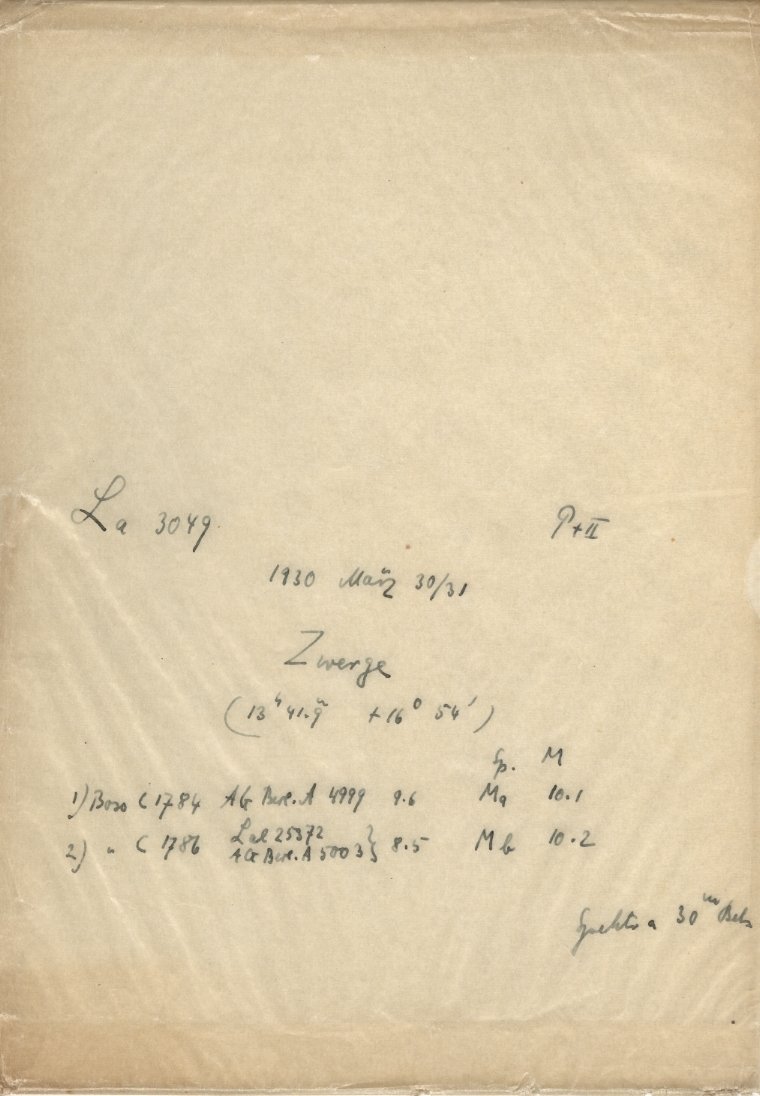 La 3049 P+II
1930 März 30/31
Zwerge
(13ʰ 41.ᵐ9 +16° 54')
Sp. M
1) Boss C 1784 AG Berl. A 4999 9.6 Ma 10.1
2) " C 1786 Lal 25372 AG Berl. A 5003} 8.5 Mb 10.2
Spektra 30ᵐ Bel.